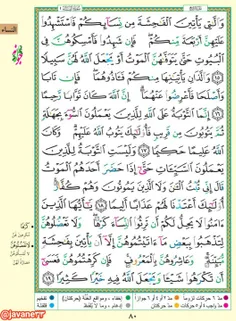 النساء
وَٱلَّٰتِى يَأْتِينَ ٱلْفَٰحِشَةَ مِن نِّسَآئِكُمْ فَٱسْتَشْهِدُوا۟
عَلَيْهِنَّ أَرْبَعَةً مِّنكُمْ فَإِن شَهِدُوا۟ فَأَمْسِكُوهُنَّ فِى
ٱلْبُيُوتِ حَتَّىٰ يَتَوَفَّىٰهُنَّ ٱلْمَوْتُ أَوْ يَجْعَلَ ٱللَّهُ لَهُنَّ سَبِيلًا
١٥ وَٱلَّذَانِ يَأْتِيَٰنِهَا مِنكُمْ فَـَٔاذُوهُمَا فَإِن تَابَا
وَأَصْلَحَا فَأَعْرِضُوا۟ عَنْهُمَآ إِنَّ ٱللَّهَ كَانَ تَوَّابًا رَّحِيمًا
١٦ إِنَّمَا ٱلتَّوْبَةُ عَلَى ٱللَّهِ لِلَّذِينَ يَعْمَلُونَ ٱلسُّوٓءَ بِجَهَٰلَةٍ
ثُمَّ يَتُوبُونَ مِن قَرِيبٍ فَأُو۟لَٰٓئِكَ يَتُوبُ ٱللَّهُ عَلَيْهِمْ وَكَانَ
ٱللَّهُ عَلِيمًا حَكِيمًا ١٧ وَلَيْسَتِ ٱلتَّوْبَةُ لِلَّذِينَ
يَعْمَلُونَ ٱلسَّيِّـَٔاتِ حَتَّىٰٓ إِذَا حَضَرَ أَحَدَهُمُ ٱلْمَوْتُ
قَالَ إِنِّى تُبْتُ ٱلْـَٰٔنَ وَلَا ٱلَّذِينَ يَمُوتُونَ وَهُمْ كُفَّارٌ
أُو۟لَٰٓئِكَ أَعْتَدْنَا لَهُمْ عَذَابًا أَلِيمًا ١٨ يَٰٓأَيُّهَا ٱلَّذِينَ
ءَامَنُوا۟ لَا يَحِلُّ لَكُمْ أَن تَرِثُوا۟ ٱلنِّسَآءَ كَرْهًا وَلَا تَعْضُلُوهُنَّ
لِتَذْهَبُوا۟ بِبَعْضِ مَآ ءَاتَيْتُمُوهُنَّ إِلَّآ أَن يَأْتِينَ بِفَٰحِشَةٍ
مُّبَيِّنَةٍ وَعَاشِرُوهُنَّ بِٱلْمَعْرُوفِ فَإِن كَرِهْتُمُوهُنَّ فَعَسَىٰٓ
أَن تَكْرَهُوا۟ شَيْـًٔا وَيَجْعَلَ ٱللَّهُ فِيهِ خَيْرًا كَثِيرًا ١٩
٨٠
@javane73